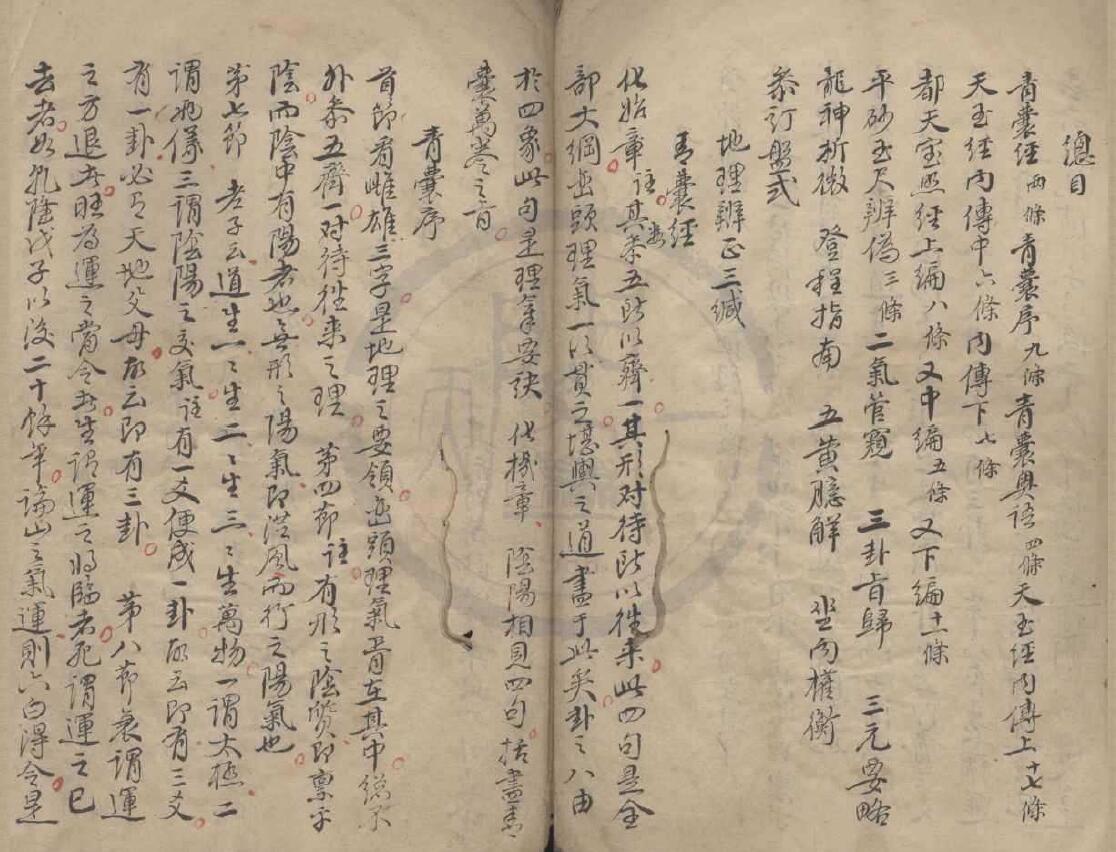 總目
青囊經两條青囊序九條青囊奥語四條天玉經内傳上十七條
天玉經内傳中六條内傳下七條
都天宝照經上编八條又中编五條又下编十一條
平砂玉尺辨偽三條二氣管窺 三卦旨歸 三元要略
龍神折微 登程指南 五黄臆解 坐向權衡
参訂盤式
地理辨正三緘
青囊經
化始章註其类五所以齊一其形对待所以徃来此四句是全
部大綱峦頭理氣一以貫之堪輿之道盡于此矣卦之八由
於四象此句是理氣要訣 化機章 陰陽相見四句括盡青
囊萬卷之旨
青囊序
首節看雌雄三字是地理之要領峦頭理氣胥在其中總不
外乎五齊一对待徃来之理 第四節註有形之陰質即禀乎
陰而陰中有陽者也無形之陽氣即从風而行之陽氣也
第七節 老子云道生一一生二二生三三生萬物一謂太極二
謂兩儀三謂陰陽之交氣註有一爻便成一卦故云即有三爻
有一卦必有天地父母故云即有三卦 第八節衰謂運
之方退者旺為運之當令者生謂運之将臨者死謂運之已
去者如乾隆戊子以後二十餘年論山之氣運則六白得令是